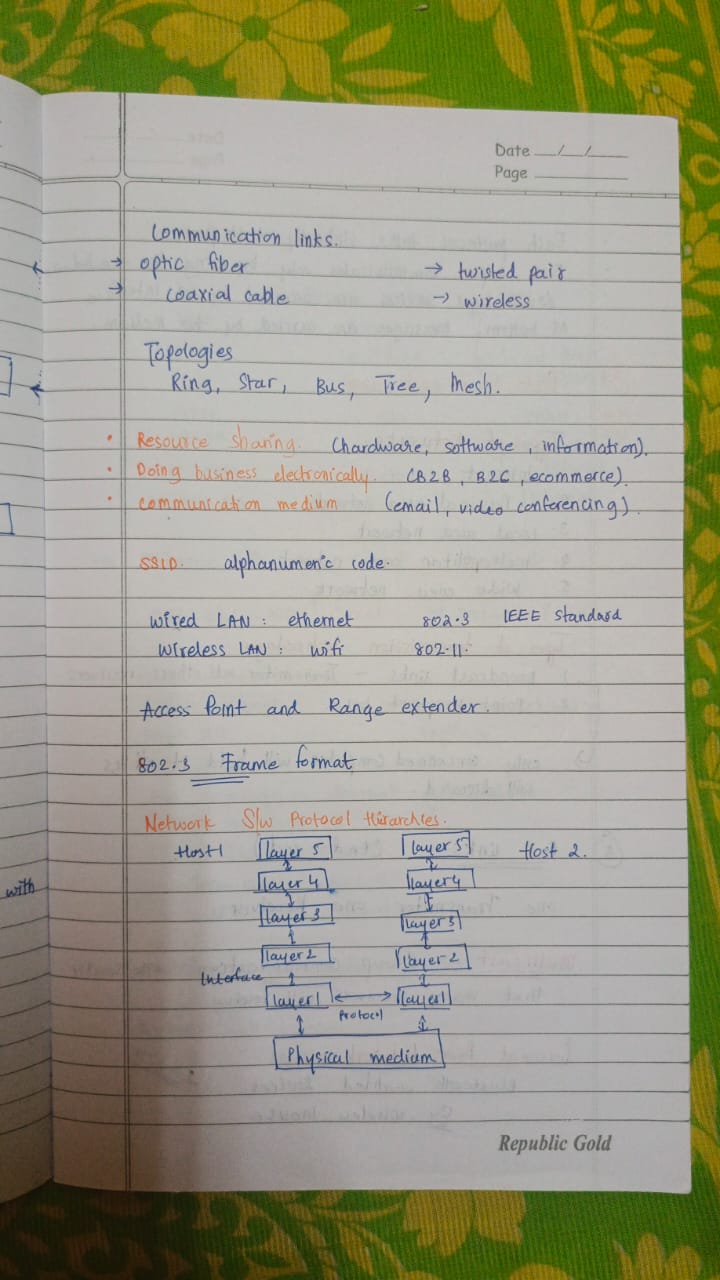 Date __/__/__
Page
Communication links.
→ optic fiber → twisted pair
→ coaxial cable → wireless
Topologies
Ring, Star, Bus, Tree, Mesh.
• Resource sharing. (hardware, software, information).
• Doing business electronically. (B2B, B2C, ecommerce).
• communication medium (email, video conferencing).
SSID. alphanumeric code.
wired LAN : ethernet 802.3 IEEE standard
Wireless LAN : wifi 802.11.
Access Point and Range extender.
802.3 Frame format
Network S/w Protocol Hierarchies.
Host1 layer 5 layer 5 Host 2.
layer 4 layer 4
with
layer 3 layer 3
layer 2 layer 2
Interface
layer 1 layer 1
Protocol
Physical medium
Republic Gold